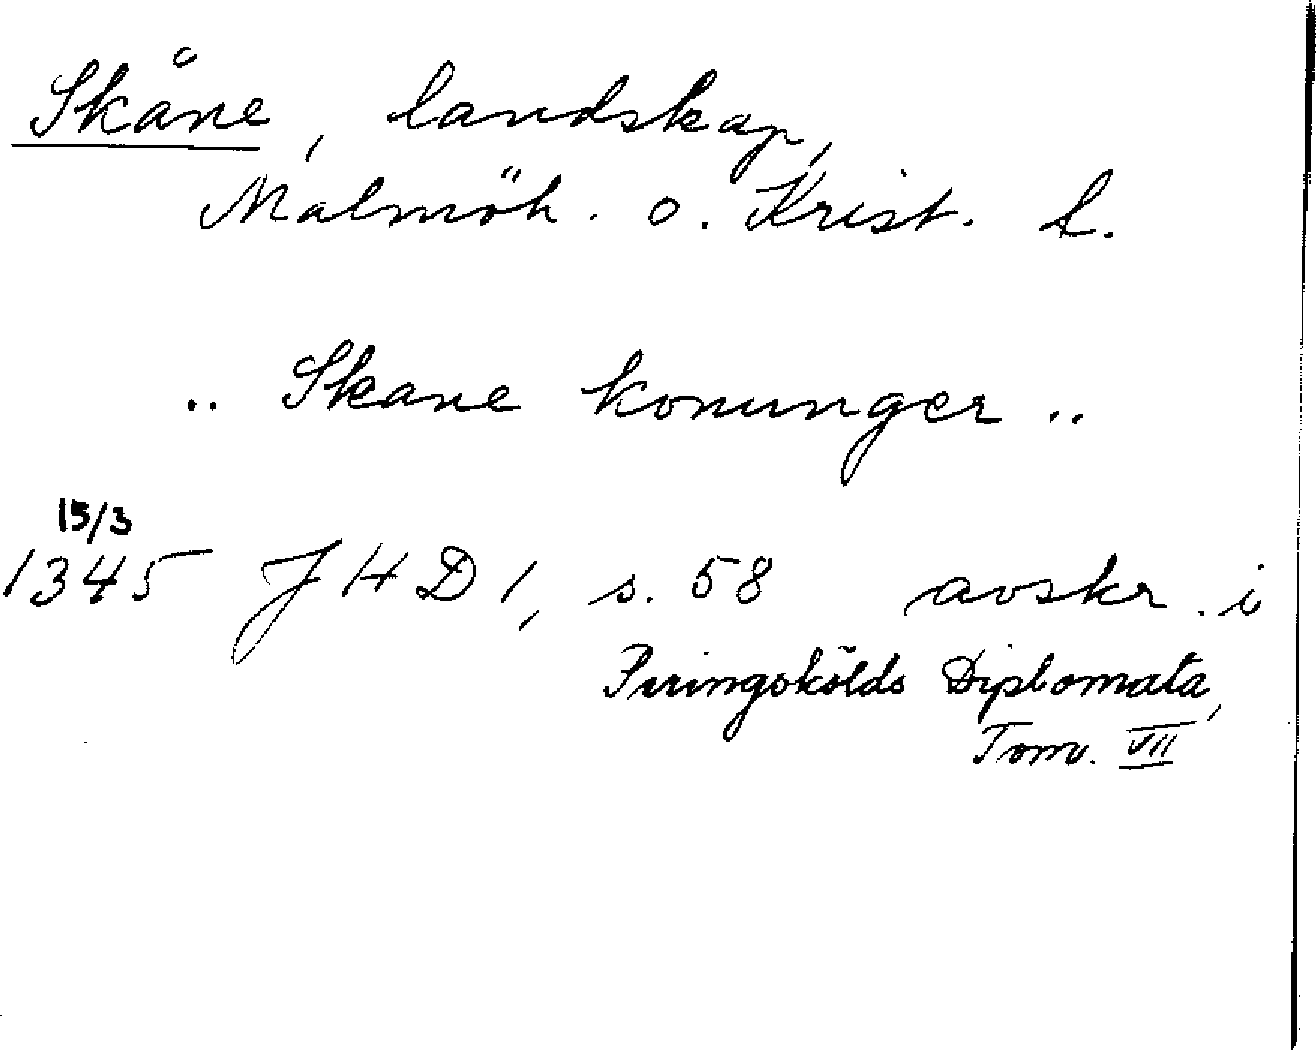 Skåne, landskap,
Malmöh. o. Krist. l.
.. Skane konunger ..
15/3
1345 JHD 1, s. 58 avskr. i
Peringskölds Diplomata,
Tom. VII